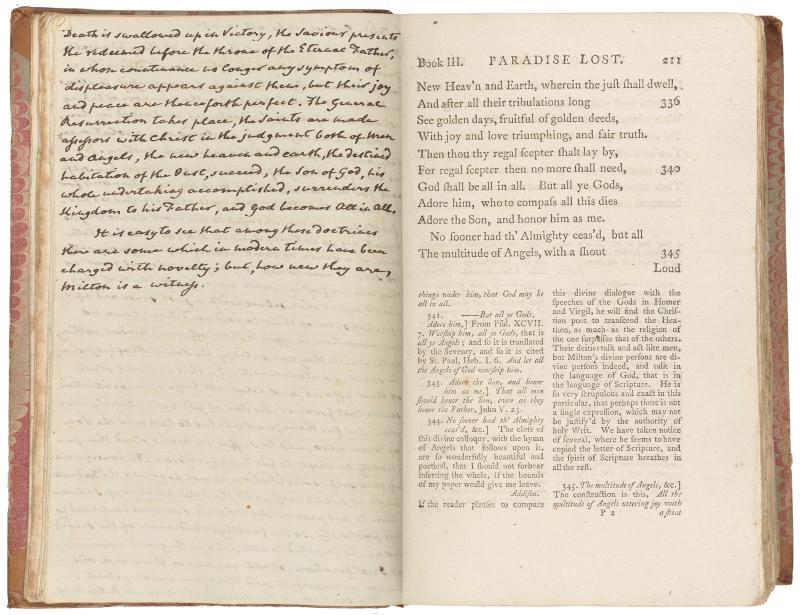 Death is swallowed up in Victory, the Saviour presents
the redeemed before the throne of the Eternal Father,
in whose countenance no longer any symptom of
displeasure appears against them, but their joy
and peace are thenceforth perfect. The General
Resurrection takes place, the Saints are made
assessors with Christ in the judgment both of Men
and Angels, the new heaven and earth, the destined
habitation of the Just, succeed, the Son of God, his
whole undertaking accomplished, surrenders the
Kingdom to his Father, and God becomes All in All.
It is easy to see that among these doctrines
there are some which in modern times have been
charged with novelty; but, how new they are,
Milton is a witness.
Book III. PARADISE LOST. 211
New Heav'n and Earth, wherein the juſt ſhall dwell,
And after all their tribulations long 336
See golden days, fruitful of golden deeds,
With joy and love triumphing, and fair truth.
Then thou thy regal ſcepter ſhalt lay by,
For regal ſcepter then no more ſhall need, 340
God ſhall be all in all. But all ye Gods,
Adore him, who to compaſs all this dies
Adore the Son, and honor him as me.
No ſooner had th' Almighty ceas'd, but all
The multitude of Angels, with a ſhout 345
Loud
things under him, that God may be
all in all.
341. ——But all ye Gods,
Adore him,] From Pſal. XCVII.
7. Worſhip him, all ye Gods, that is
all ye Angels; and ſo it is tranſlated
by the Seventy, and ſo it is cited
by St. Paul, Heb. I. 6. And let all
the Angels of God worſhip him.
343. Adore the Son, and honor
him as me.] That all men
ſhould honor the Son, even as they
honor the Father, John V. 23.
344. No ſooner had th' Almighty
ceas'd, &c.] The cloſe of
this divine colloquy, with the hymn
of Angels that follows upon it,
are ſo wonderfully beautiful and
poetical, that I ſhould not forbear
inſerting the whole, if the bounds
of my paper would give me leave.
Addiſon.
If the reader pleaſes to compare
this divine dialogue with the
ſpeeches of the Gods in Homer
and Virgil, he will find the Chriſ-
tian poet to tranſcend the Hea-
then, as much as the religion of
the one ſurpaſſes that of the others.
Their deities talk and act like men,
but Milton's divine perſons are di-
vine perſons indeed, and talk in
the language of God, that is in
the language of Scripture. He is
ſo very ſcrupulous and exact in this
particular, that perhaps there is not
a ſingle expreſſion, which may not
be juſtify'd by the authority of
holy Writ. We have taken notice
of ſeveral, where he ſeems to have
copied the letter of Scripture, and
the ſpirit of Scripture breathes in
all the reſt.
345. The multitude of Angels, &c.]
The conſtruction is this, All the
multitude of Angels uttering joy with
P 2 a ſhout